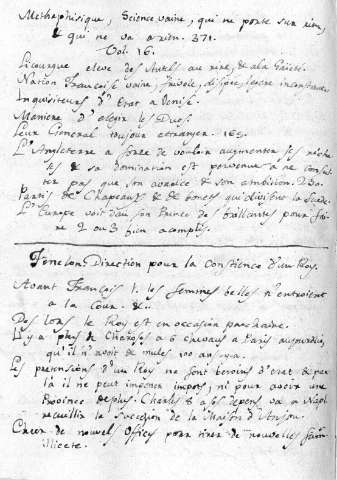 Methaphisique, Science vaine, qui ne porte sur rien,
& qui ne va a rien. 371.
Vol. 16.
Licourgue eleve des Autels au rire, & a la Gaieté.
Nation Françoise vaine, frivole, dissipée, legere inconstante.
Inquisiteurs d'Etat a Venise.
Maniere d'elire les Doges.
Leur General toujour etranger. 165.
L'Angleterre a force de vouloir augmenter ses riches
ses & sa domination est parvenue a ne consul
ter pas que son avarice & son ambition. 230.
Partis de Chapeaux & de bonets qui divisent la Suede.
L'Europe voit d'un son Prince de brillantes pour fai
re 2 ou 3 bien acomplis.
Fenelon, Direction pour la Constience d'un Roy.
Avant François I. les femmes belles n'entroient
a la Cour. &c.
Des lors, le Roy est en occasion prochaine.
Il y a plus de Caroses a 6 chevaux a Paris aujourdui,
qu'il n'avoit de mules 100 ans y a.
Les pretensions d'un Roy ne sont besoins d'etat & par
là il ne peut imposer impots, ni pour avoir une
Province de plus. Charles 8 a ses depens va a Napl
recueillir la Succession de la Maison d'Anjou.
Creer de nouvels Offices pour tirer de nouvelles
illicite.